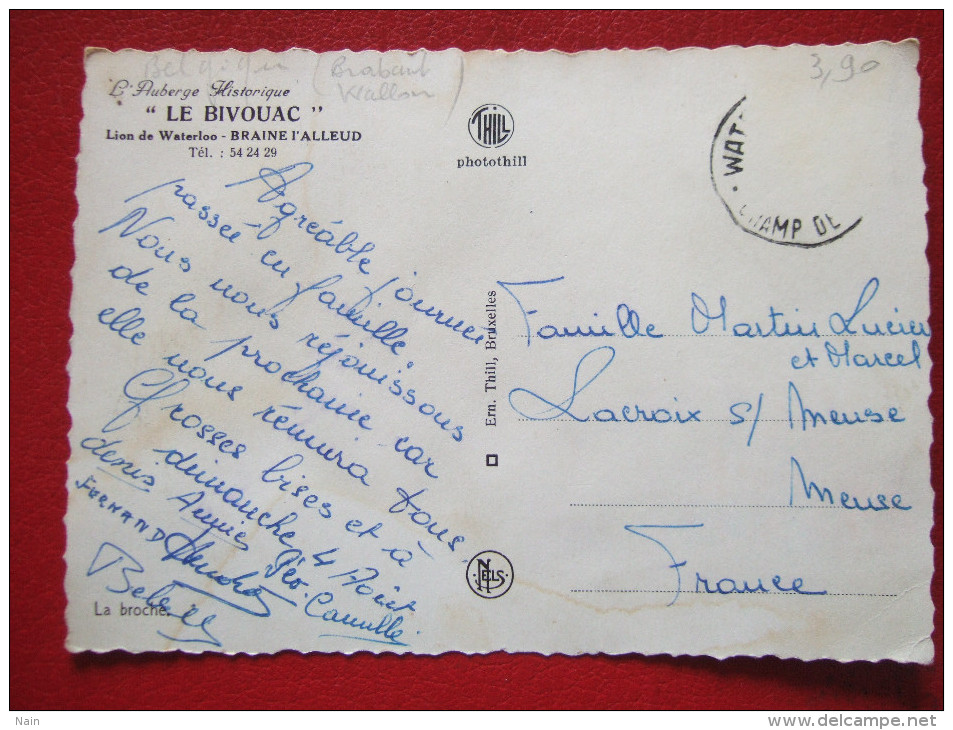 Belgique (Brabant
Wallon)
3,90
L'Auberge Historique
" LE BIVOUAC "
Lion de Waterloo - BRAINE l'ALLEUD
Tél. : 54 24 29
THILL
photothill
WAT
CHAMP DE
Agréable journée
passée en famille.
Nous nous réjouissons
de la prochaine car
elle nous réunira tous,
Grosses bises et à
dimanche 4 Août
denis Annie Géo. Camille
FERNAND
La broche.
Ern. Thill, Bruxelles
NELS
Famille Martin Lucien
et Marcel
Lacroix s/ Meuse
Meuse
France
Nain
www.delcampe.net